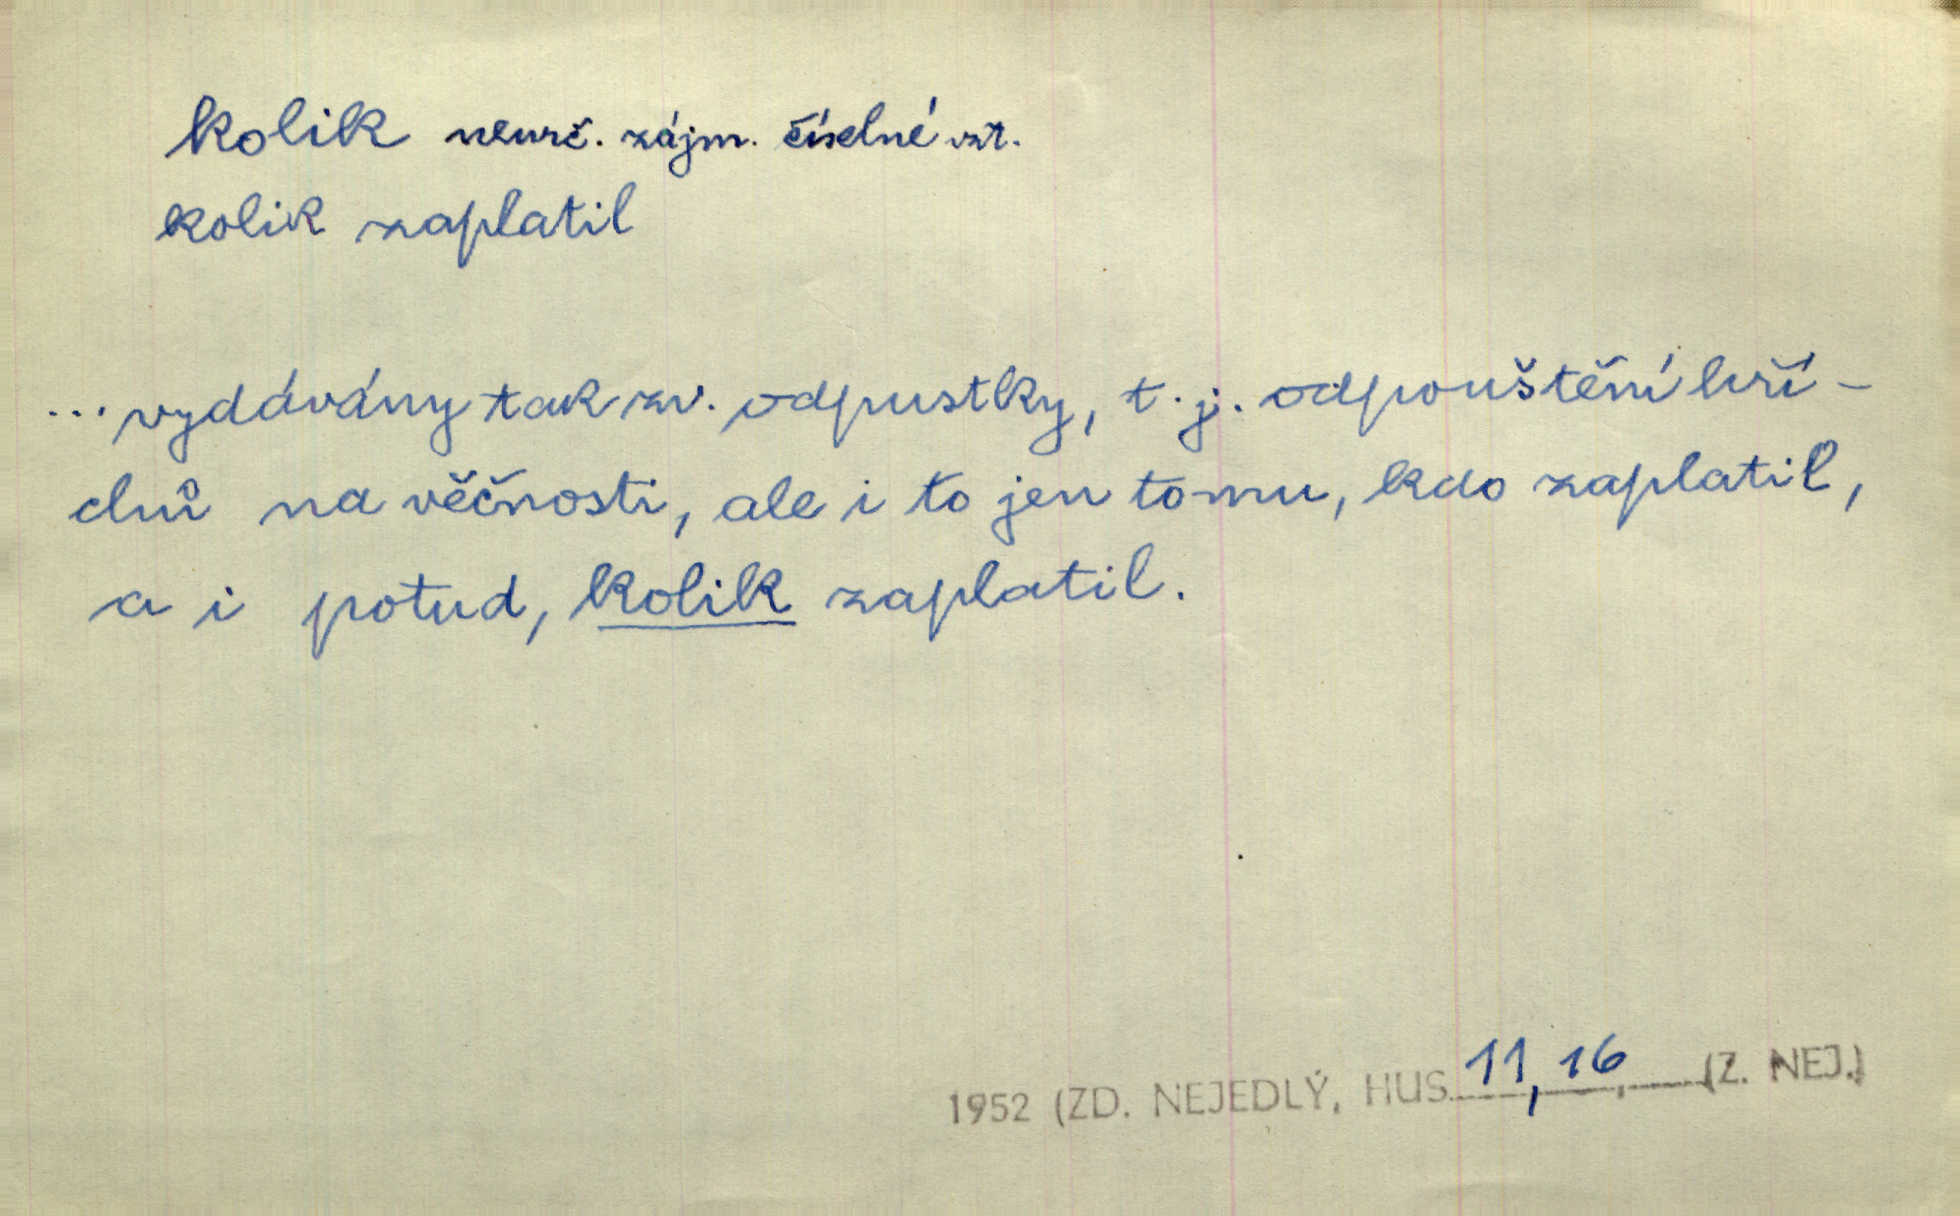 kolik neurč. zájm. číselné vzt.
kolik zaplatil
... vydávány tak zv. odpustky, t. j. odpouštění hří-
chů na věčnosti, ale i to jen tomu, kdo zaplatil,
a i potud, kolik zaplatil.
1952 (ZD. NEJEDLÝ, HUS 11, 16, (Z. NEJ.)